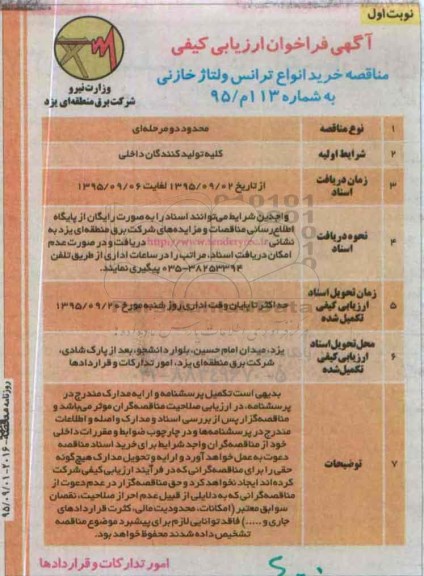 نوبت اول
آگهی فراخوان ارزیابی کیفی
مناقصه خرید انواع ترانس ولتاژ خازنی
به شماره ۱۱۳م/۹۵
وزارت نیرو
شرکت برق منطقه‌ای یزد
۱ نوع مناقصه محدود دو مرحله‌ای
۲ شرایط اولیه کلیه تولیدکنندگان داخلی
۳ زمان دریافت اسناد از تاریخ ۱۳۹۵/۰۹/۰۲ لغایت ۱۳۹۵/۰۹/۰۶
۴ نحوه دریافت اسناد
واجدین شرایط می‌توانند اسناد را به صورت رایگان از پایگاه
اطلاع‌رسانی مناقصات و مزایده‌های شرکت برق منطقه‌ای یزد به
نشانی دریافت و در صورت عدم
امکان دریافت اسناد، مراتب را در ساعات اداری از طریق تلفن
۰۳۵-۳۸۲۵۳۳۹۴ پیگیری نمایند.
۵ زمان تحویل اسناد ارزیابی کیفی تکمیل شده حداکثر تا پایان وقت اداری روز شنبه مورخ ۱۳۹۵/۰۹/۲۰
۶ محل تحویل اسناد ارزیابی کیفی تکمیل شده
یزد، میدان امام حسین، بلوار دانشجو، بعد از پارک شادی،
شرکت برق منطقه‌ای یزد، امور تدارکات و قراردادها
۷ توضیحات
بدیهی است تکمیل پرسشنامه و ارایه مدارک مندرج در
پرسشنامه، در ارزیابی صلاحیت مناقصه‌گران موثر می‌باشد و
مناقصه‌گزار پس از بررسی اسناد و مدارک واصله و اطلاعات
مندرج در پرسشنامه‌ها و در چارچوب ضوابط و مقررات داخلی
خود از مناقصه‌گران واجد شرایط برای خرید اسناد مناقصه
دعوت به عمل خواهد آورد و ارایه و تحویل مدارک هیچ‌گونه
حقی را برای مناقصه‌گرانی که در فرآیند ارزیابی کیفی شرکت
کرده‌اند ایجاد نخواهد کرد و حق مناقصه‌گزار در عدم دعوت از
مناقصه‌گرانی که به دلایلی از قبیل عدم احراز صلاحیت، نقصان
سوابق معتبر (امکانات، محدودیت مالی، کثرت قراردادهای
جاری و .....) فاقد توانایی لازم برای پیشبرد موضوع مناقصه
تشخیص داده شدند محفوظ خواهد بود.
امور تدارکات و قراردادها
۹۵/۰۹/۰۱-۲۰۱۶